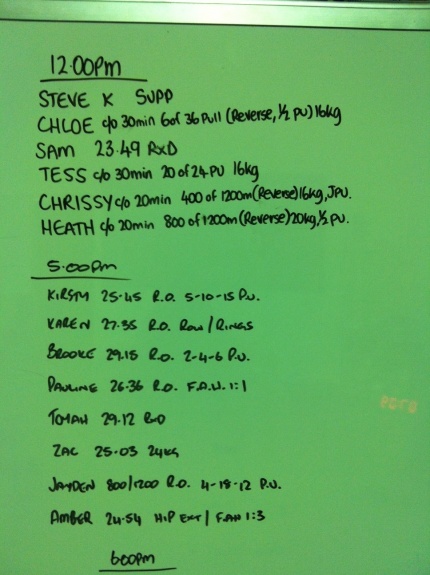 12.00pm
STEVE K SUPP
CHLOE c/o 30min 6 of 36 Pull (Reverse, ½ PU) 16kg
SAM 23.49 RxD
TESS c/o 30min 20 of 24 PU 16kg
CHRISSY c/o 20min 400 of 1200m (Reverse) 16kg, JPU.
HEATH c/o 20min 800 of 1200m (Reverse) 20kg, ½ PU.
5.00pm
KIRSTY 25.45 R.O. 5-10-15 P.U.
KAREN 27.35 R.O. ROW / RINGS
BROOKE 29.15 R.O. 2-4-6 P.U.
PAULINE 26.36 R.O. F.A.H. 1:1
29.12
ZAC 25.03 24KG
JAYDEN 800/1200 R.O. 4-18-12 P.U.
AMBER 24.54 HIP EXT / FAH 1:3
6:00pm